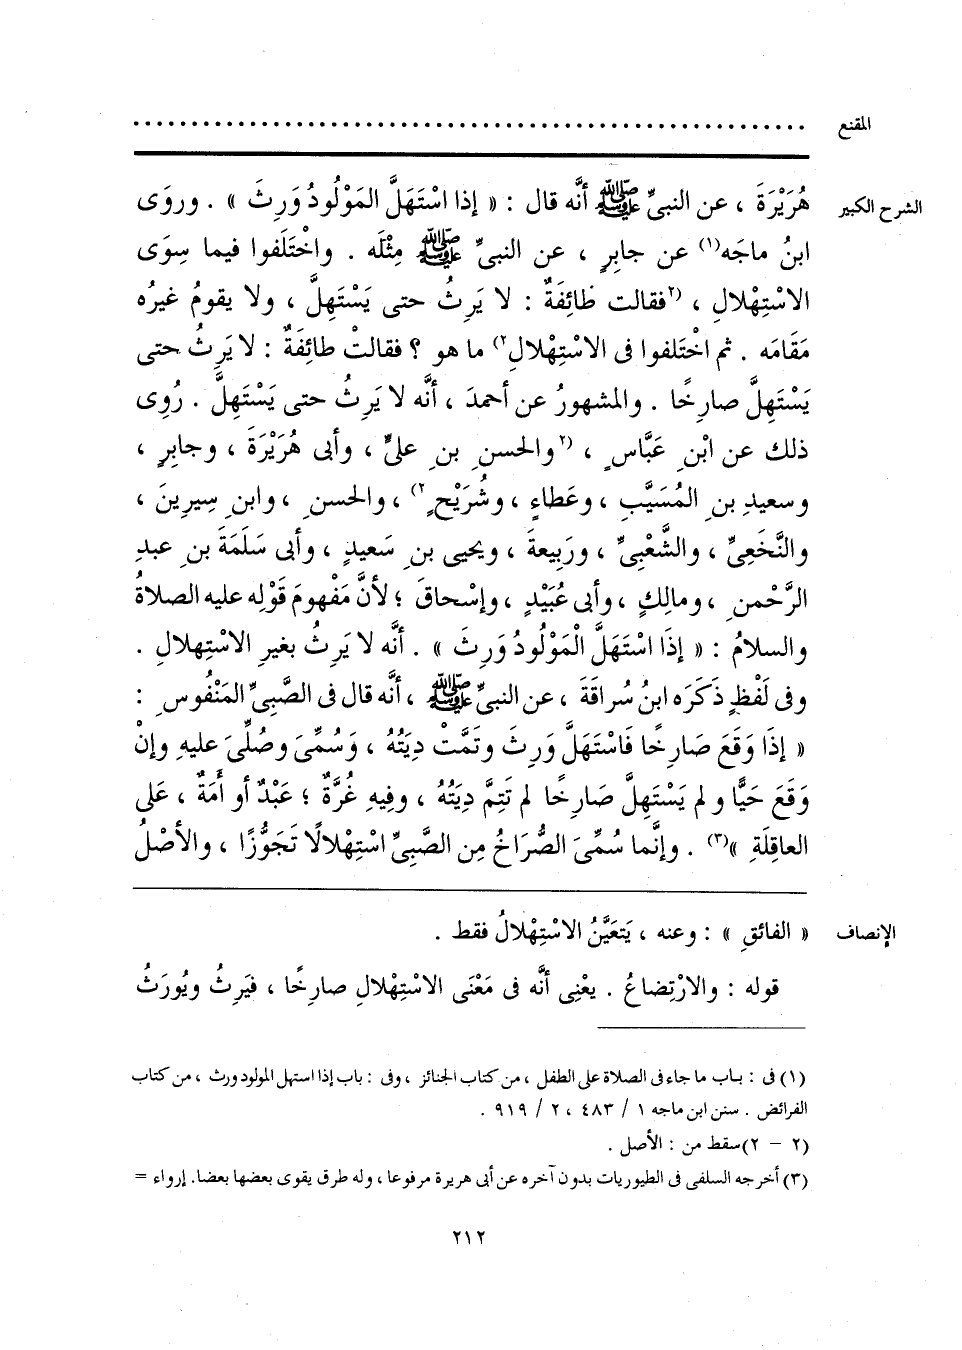 المقنع ........................................................
الشرح الكبير هُرَيْرَةَ ، عن النبىِّ ﷺ أنَّه قال : « إذا اسْتَهَلَّ المَوْلُودُ وَرِثَ » . وروَى
ابنُ ماجَه(١) عن جابِرٍ ، عن النبىِّ ﷺ مِثْلَه . واخْتَلَفوا فيما سِوَى
الاسْتِهْلالِ ، (٢فقالت طائِفَةٌ : لا يَرِثُ حتى يَسْتَهِلَّ ، ولا يقومُ غيرُه
مَقَامَه . ثم اخْتَلفوا فى الاسْتِهْلالِ٢) ما هو ؟ فقالتْ طائِفَةٌ : لا يَرِثُ حتى
يَسْتَهِلَّ صارِخًا . والمشهورُ عن أحمدَ ، أنَّه لا يَرِثُ حتى يَسْتَهِلَّ . رُوِى
ذلك عن ابْنِ عَبَّاسٍ ، (٢والحسنِ بنِ علىٍّ ، وأبى هُرَيْرَةَ ، وجابِرٍ ،
وسعيدِ بنِ المُسَيَّبِ ، وعَطاءٍ ، وشُرَيْحٍ٢) ، والحسنِ ، وابنِ سِيرِينَ ،
والنَّخَعِىِّ ، والشَّعْبِىِّ ، ورَبِيعةَ ، ويحيى بنِ سَعيدٍ ، وأبى سَلَمَةَ بنِ عبدِ
الرَّحْمنِ ، ومالِكٍ ، وأبى عُبَيْدٍ ، وإسْحاقَ ؛ لأنَّ مَفْهومَ قَوْلِه عليه الصلاةُ
والسلامُ : « إذَا اسْتَهَلَّ الْمَوْلُودُ وَرِثَ » . أنَّه لا يَرِثُ بغيرِ الاسْتِهلالِ .
وفى لَفْظٍ ذَكَرَه ابنُ سُراقَةَ ، عن النبىِّ ﷺ ، أنَّه قال فى الصَّبِىِّ المَنْفُوسِ :
« إذَا وَقَعَ صَارِخًا فَاسْتَهَلَّ وَرِثَ وتَمَّتْ دِيَتُهُ ، وَسُمِّىَ وصُلِّىَ عليهِ وإنْ
وَقَعَ حَيًّا و لم يَسْتَهِلَّ صَارِخًا لم تَتِمَّ دِيَتُهُ ، وفِيهِ غُرَّةٌ ؛ عَبْدٌ أو أَمَةٌ ، عَلى
العاقِلَةِ »(٣) . وإنَّما سُمِّىَ الصُّرَاخُ مِن الصَّبِىِّ اسْتِهْلالًا تَجَوُّزًا ، والأصْلُ
الإنصاف « الفائقِ » : وعنه ، يَتعَيَّنُ الاسْتِهْلالُ فقط .
قوله : والارْتِضاعُ . يعْنِى أنَّه فى مَعْنَى الاسْتِهْلالِ صارِخًا ، فيَرِثُ ويُورَثُ
(١) فى : باب ما جاء فى الصلاة على الطفل ، من كتاب الجنائز ، وفى : باب إذا استهل المولود ورث ، من كتاب
الفرائض . سنن ابن ماجه ١ / ٤٨٣ ، ٢ / ٩١٩ .
(٢ - ٢) سقط من : الأصل .
(٣) أخرجه السلفى فى الطيوريات بدون آخره عن أبى هريرة مرفوعا ، وله طرق يقوى بعضها بعضا. إرواء =
٢١٢